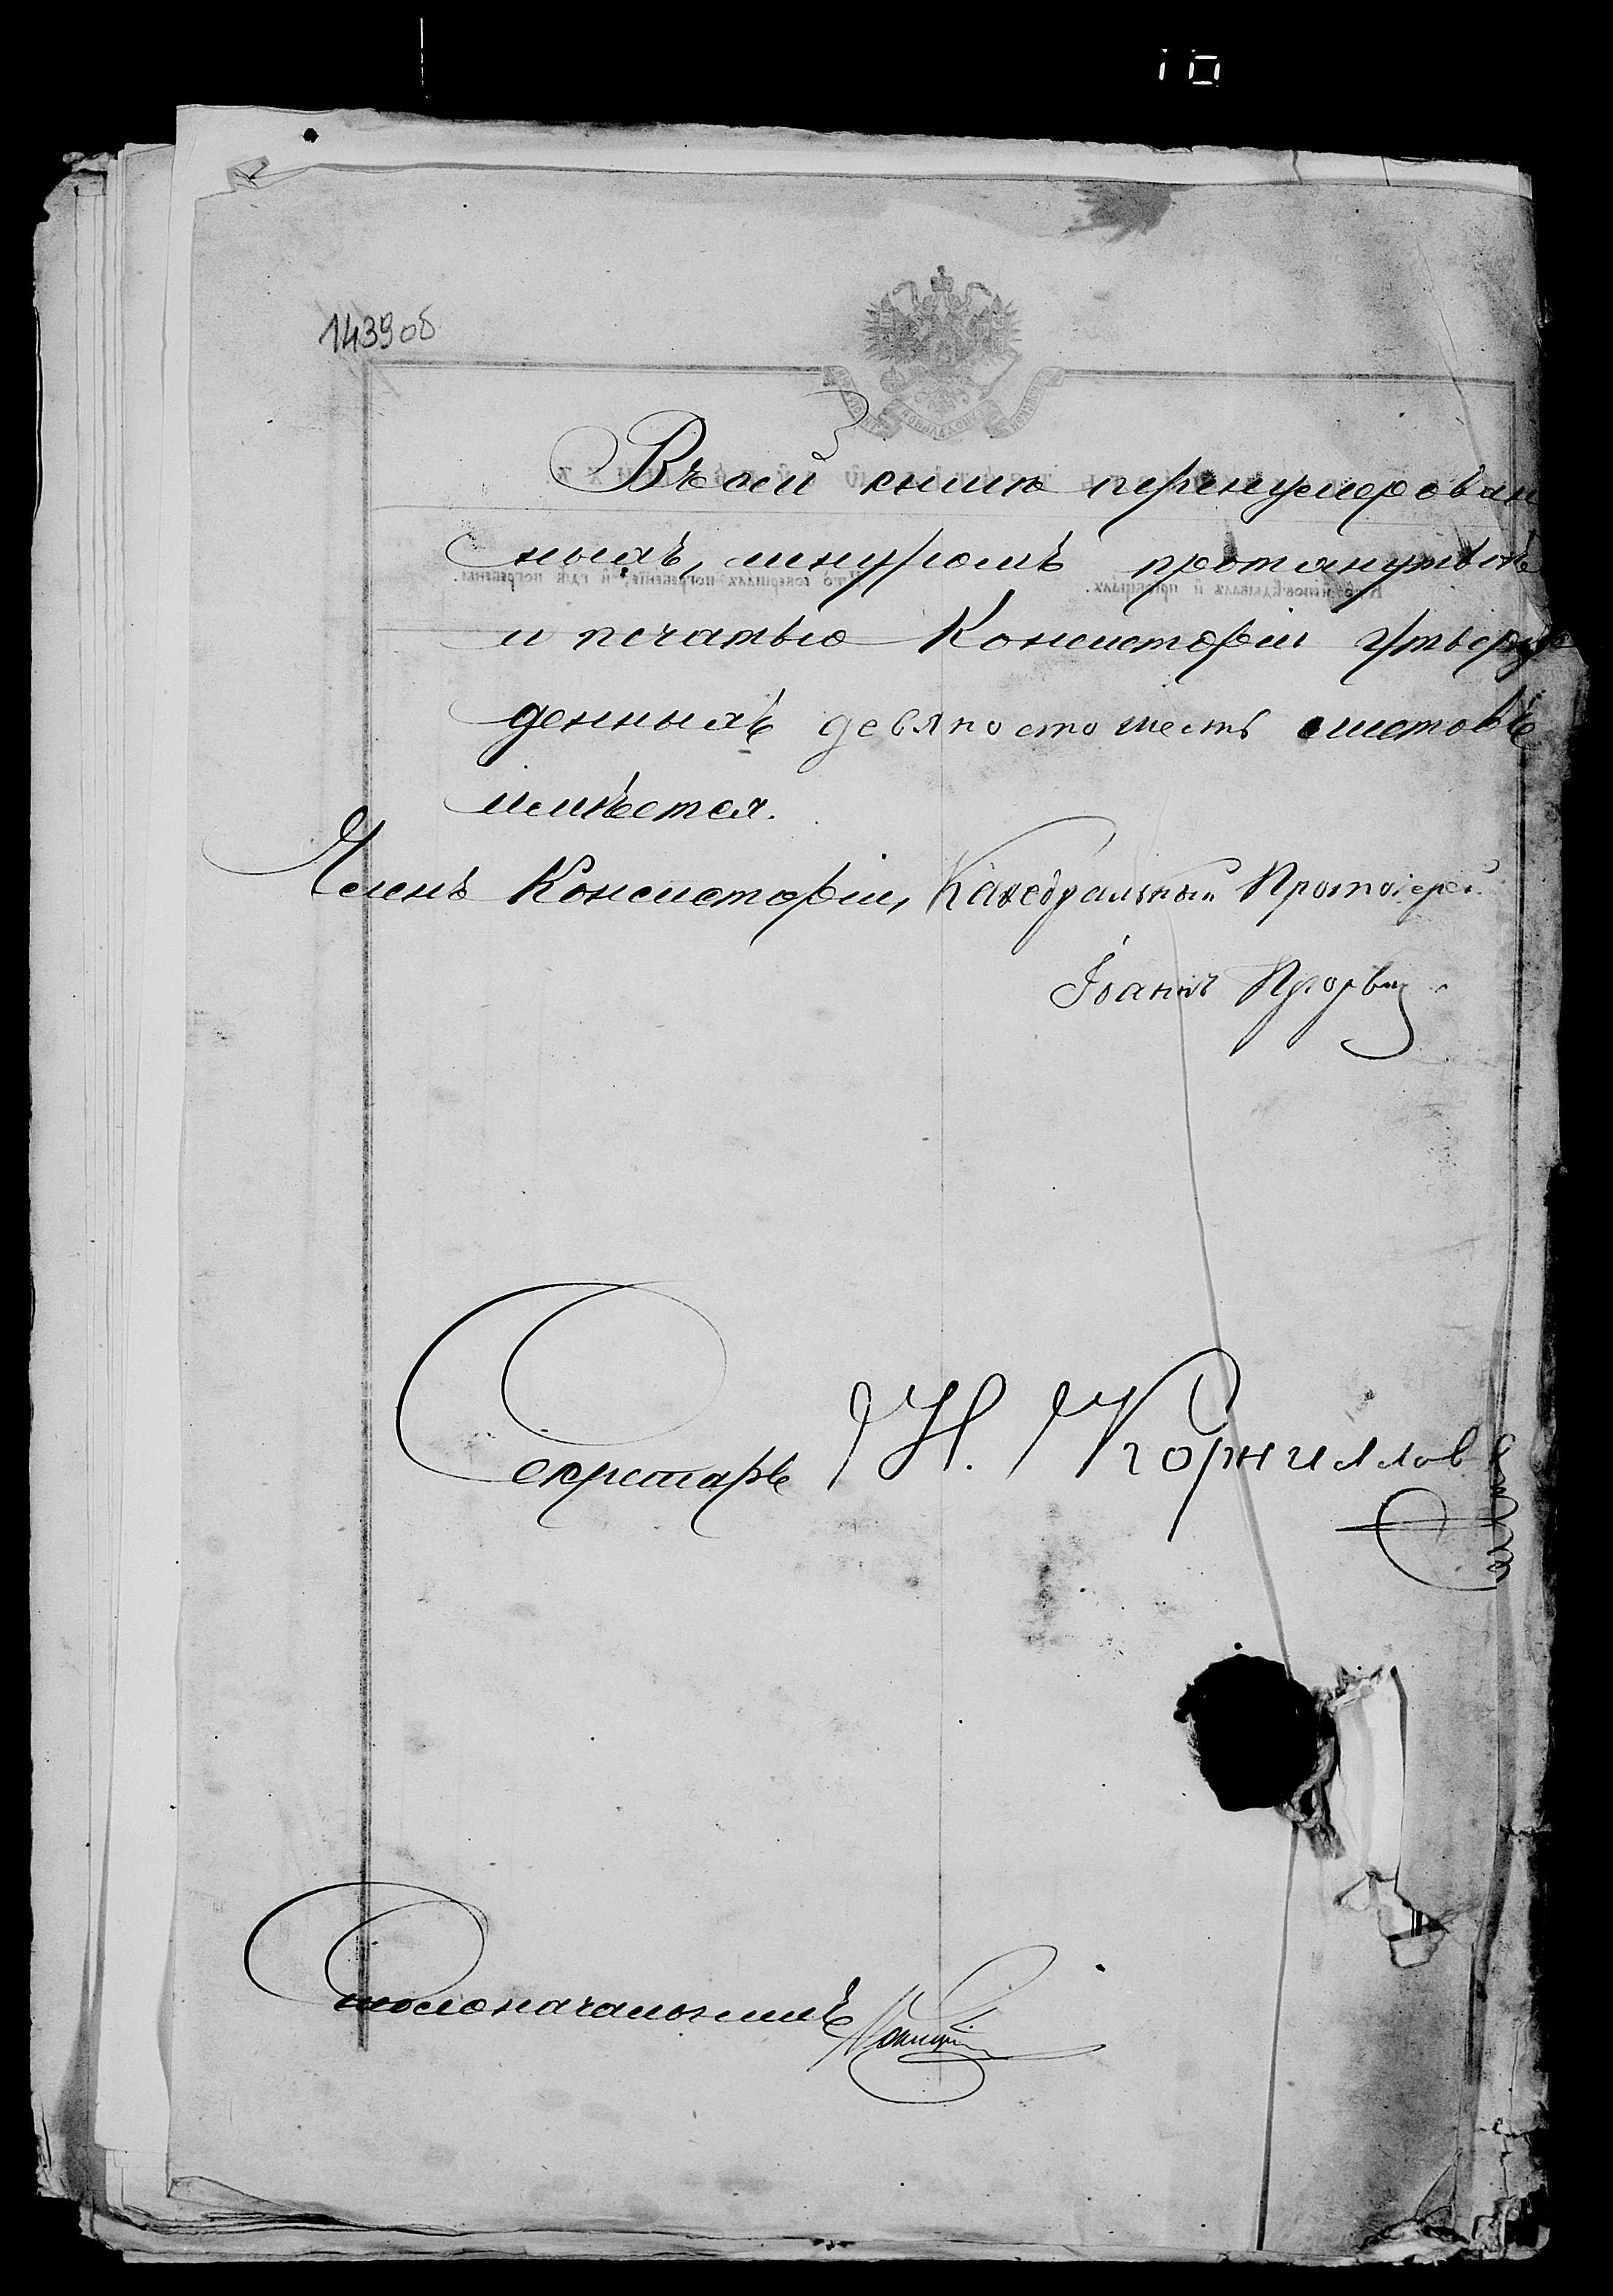 1439 об
Въ сей книгѣ перенумерован
ныхъ, шнуромъ протянутыхъ
и печатью Консисторіи утверж
денныхъ девяносто шесть листовъ
имѣется.
Членъ Консисторіи, Каѳедральный Протоіерей
Іоаннъ
Секретарь Н. Корниллов
Столоначальникъ